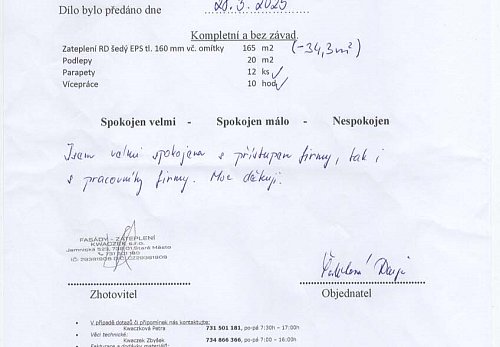 Dílo bylo předáno dne 28.3.2025
Kompletní a bez závad.
Zateplení RD šedý EPS tl. 160 mm vč. omítky 165 m2 (-34,3m²)
Podlepy 20 m2
Parapety 12 ks
Vícepráce 10 hod
Spokojen velmi - Spokojen málo - Nespokojen
Jsem velmi spokojena s přístupem firmy, tak i
s pracovníky firmy. Moc děkuji.
FASÁDY - ZATEPLENÍ
KWACZEK s.r.o.
Jamnická 523, 738 01 Staré Město
Zhotovitel Objednatel
V případě dotazů či připomínek nás kontaktujte:
Kwaczková Petra 731 501 181, po-pá 7:30h - 17:00h
Věci technické:
Kwaczek Zbyšek 734 866 366, po-pá 7:00 - 16:00h